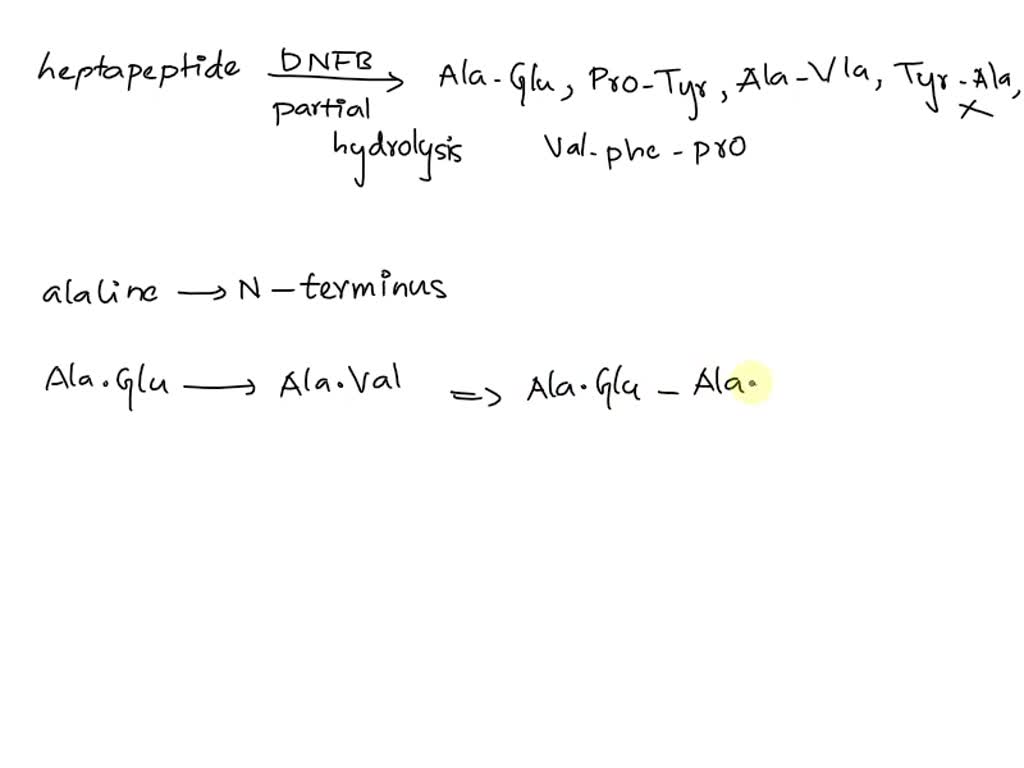 heptapeptide DNFB Ala-Glu, Pro-Tyr, Ala-Vla, Tyr-Ala,
partial x
hydrolysis Val-phe-pro
alaline → N-terminus
Ala.Glu → Ala.Val => Ala.Glu - Ala.